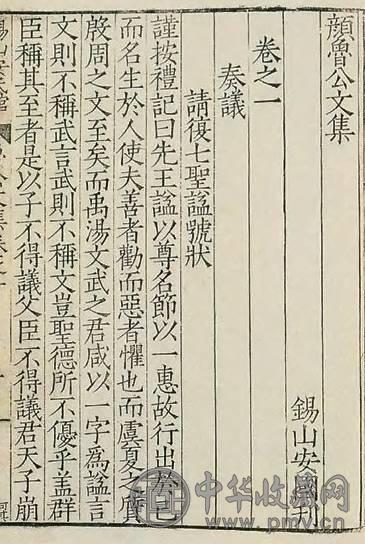 顔魯公文集
錫山安國刊
卷之一
奏議
請復七聖謚號狀
謹按禮記曰先王謚以尊名節以一惠故行出於己
而名生於人使夫善者勸而惡者懼也而虞夏之質
殷周之文至矣而禹湯文武之君咸以一字爲謚言
文則不稱武言武則不稱文豈聖德所不優乎盖群
臣稱其至者是以子不得議父臣不得議君天子崩
中华收藏网
www.pmv.cn